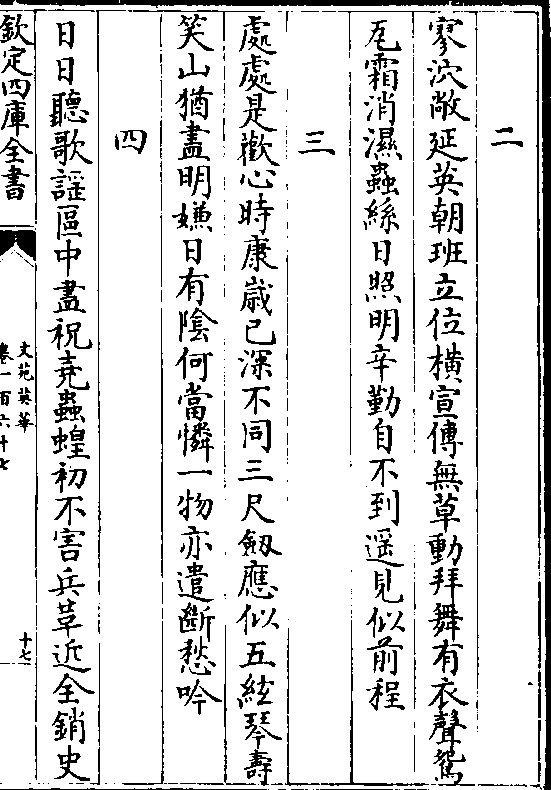 二
寥泬敞延英朝班立位橫宣傳無草動拜舞有衣聲鴛
瓦霜消濕蟲絲日照明辛勤自不到遥見似前程
三
處處是歡心時康歲已深不同三尺劔應似五絃琴壽
笑山猶盡明嫌日有陰何當憐一物亦遣斷愁吟
四
日日聽歌謡區中盡祝堯蟲蝗初不害兵革近全銷史
欽定四庫全書
文苑英華
卷一百六十七
十七